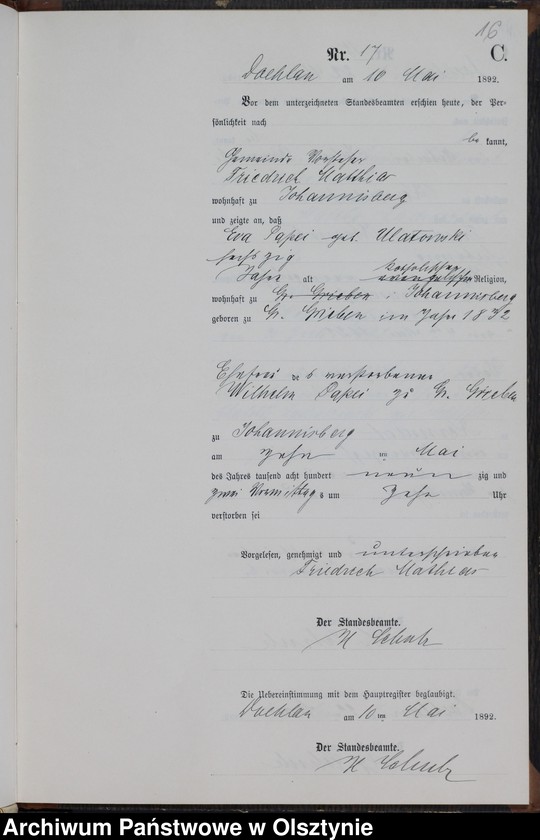 16
Nr. 17 C.
Doehlau am 10 Mai 1892.
Vor dem unterzeichneten Standesbeamten erschien heute, der Per-
sönlichkeit nach
be kannt,
Gemeinde Vorsteher
Friedrich Matthias
wohnhaft zu Johannisberg
und zeigte an, daß
Eva Papei geb. Ulatowski
sechszig
katholischer
Jahre alt evangelischer Religion,
wohnhaft zu Gr. Grieben Johannisberg
geboren zu Gr. Grieben im Jahr 1832
Ehefrau des verstorbenen
Wilhelm Papei zu Gr. Grieben
zu Johannisberg
am zehn ten Mai
des Jahres tausend acht hundert neun zig und
zwei Vormittags um Zehn Uhr
verstorben sei
Vorgelesen, genehmigt und unterschrieben
Friedrich Mathias
Der Standesbeamte.
Schulz
Die Uebereinstimmung mit dem Hauptregister beglaubigt.
Doehlau am 10 ten Mai 1892.
Der Standesbeamte.
Schulz
Archiwum Państwowe w Olsztynie